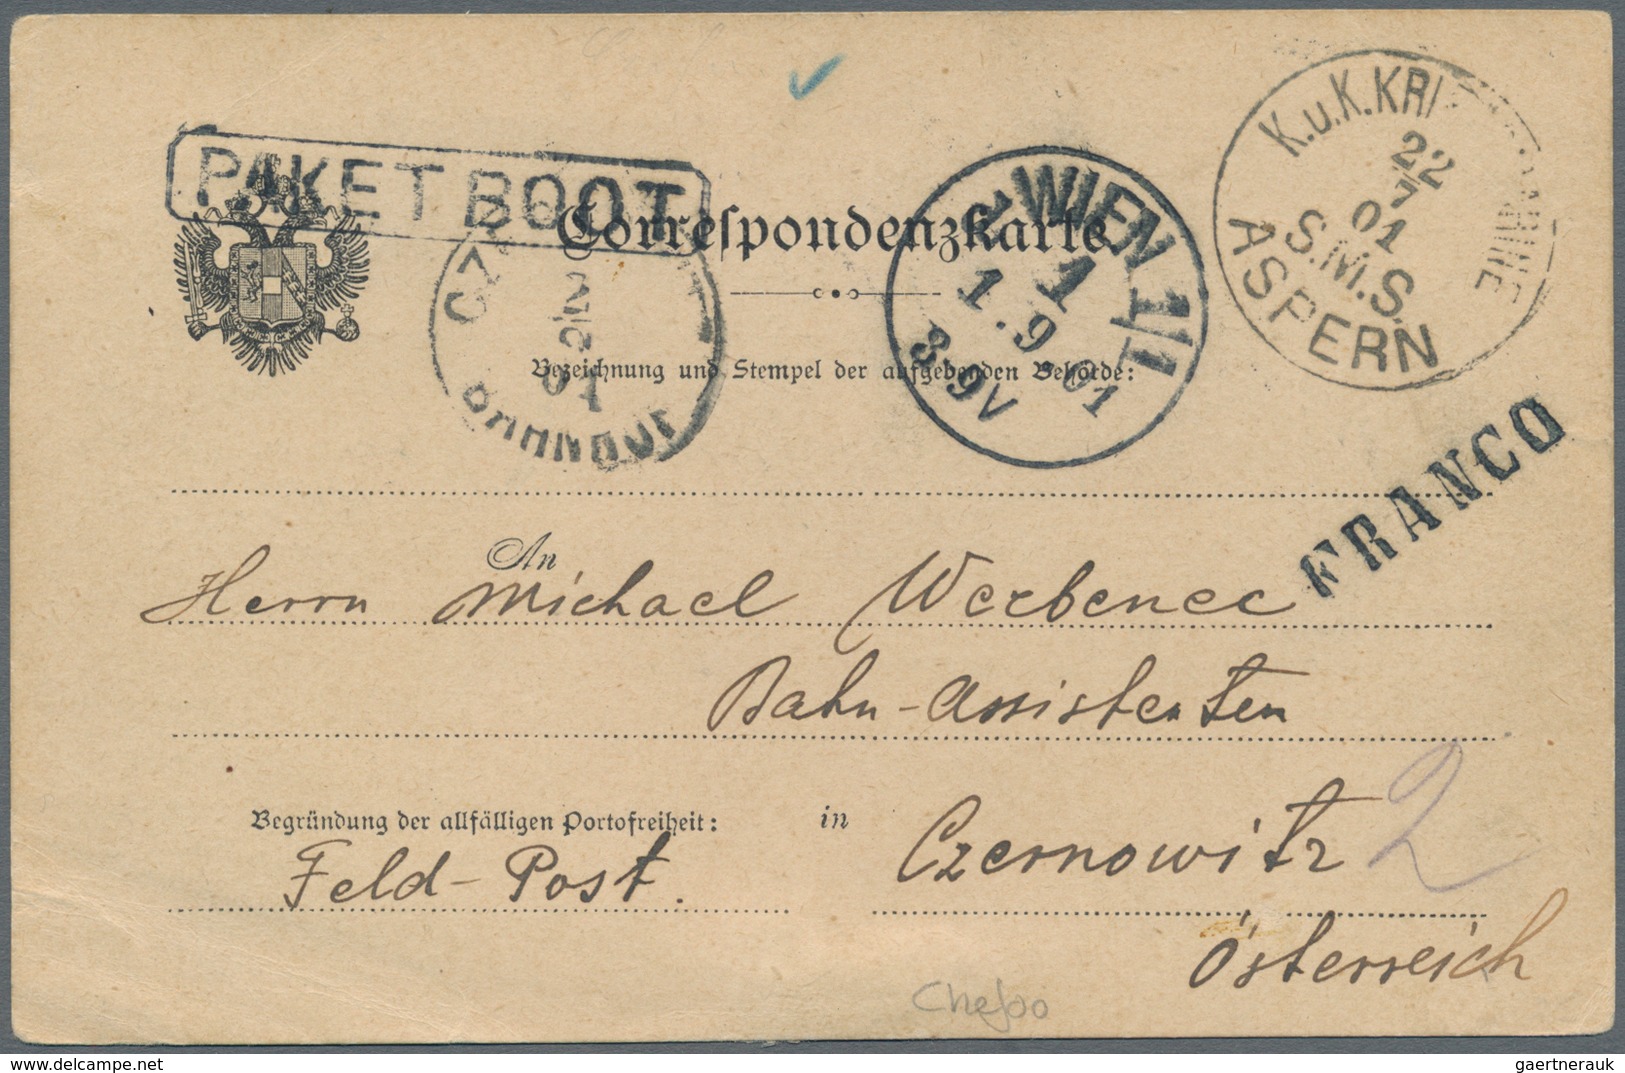 PAKETBOOT
K.u.K. KRI MARINE
22
7
01
S.M.S.
ASPERN
Correspondenzkarte.
2/WIEN 1/1
1
1.9.01
8-9V
CZ
2
01
BAHNHOF
Bezeichnung und Stempel der aufgebenden Behörde:
FRANCO
An
Herrn Michael Werbenec
Bahn-Assistenten
Begründung der allfälligen Portofreiheit:
in
Czernowitz 2
Feld-Post.
Österreich
Chefoo
www.delcampe.net
gaertnerauk